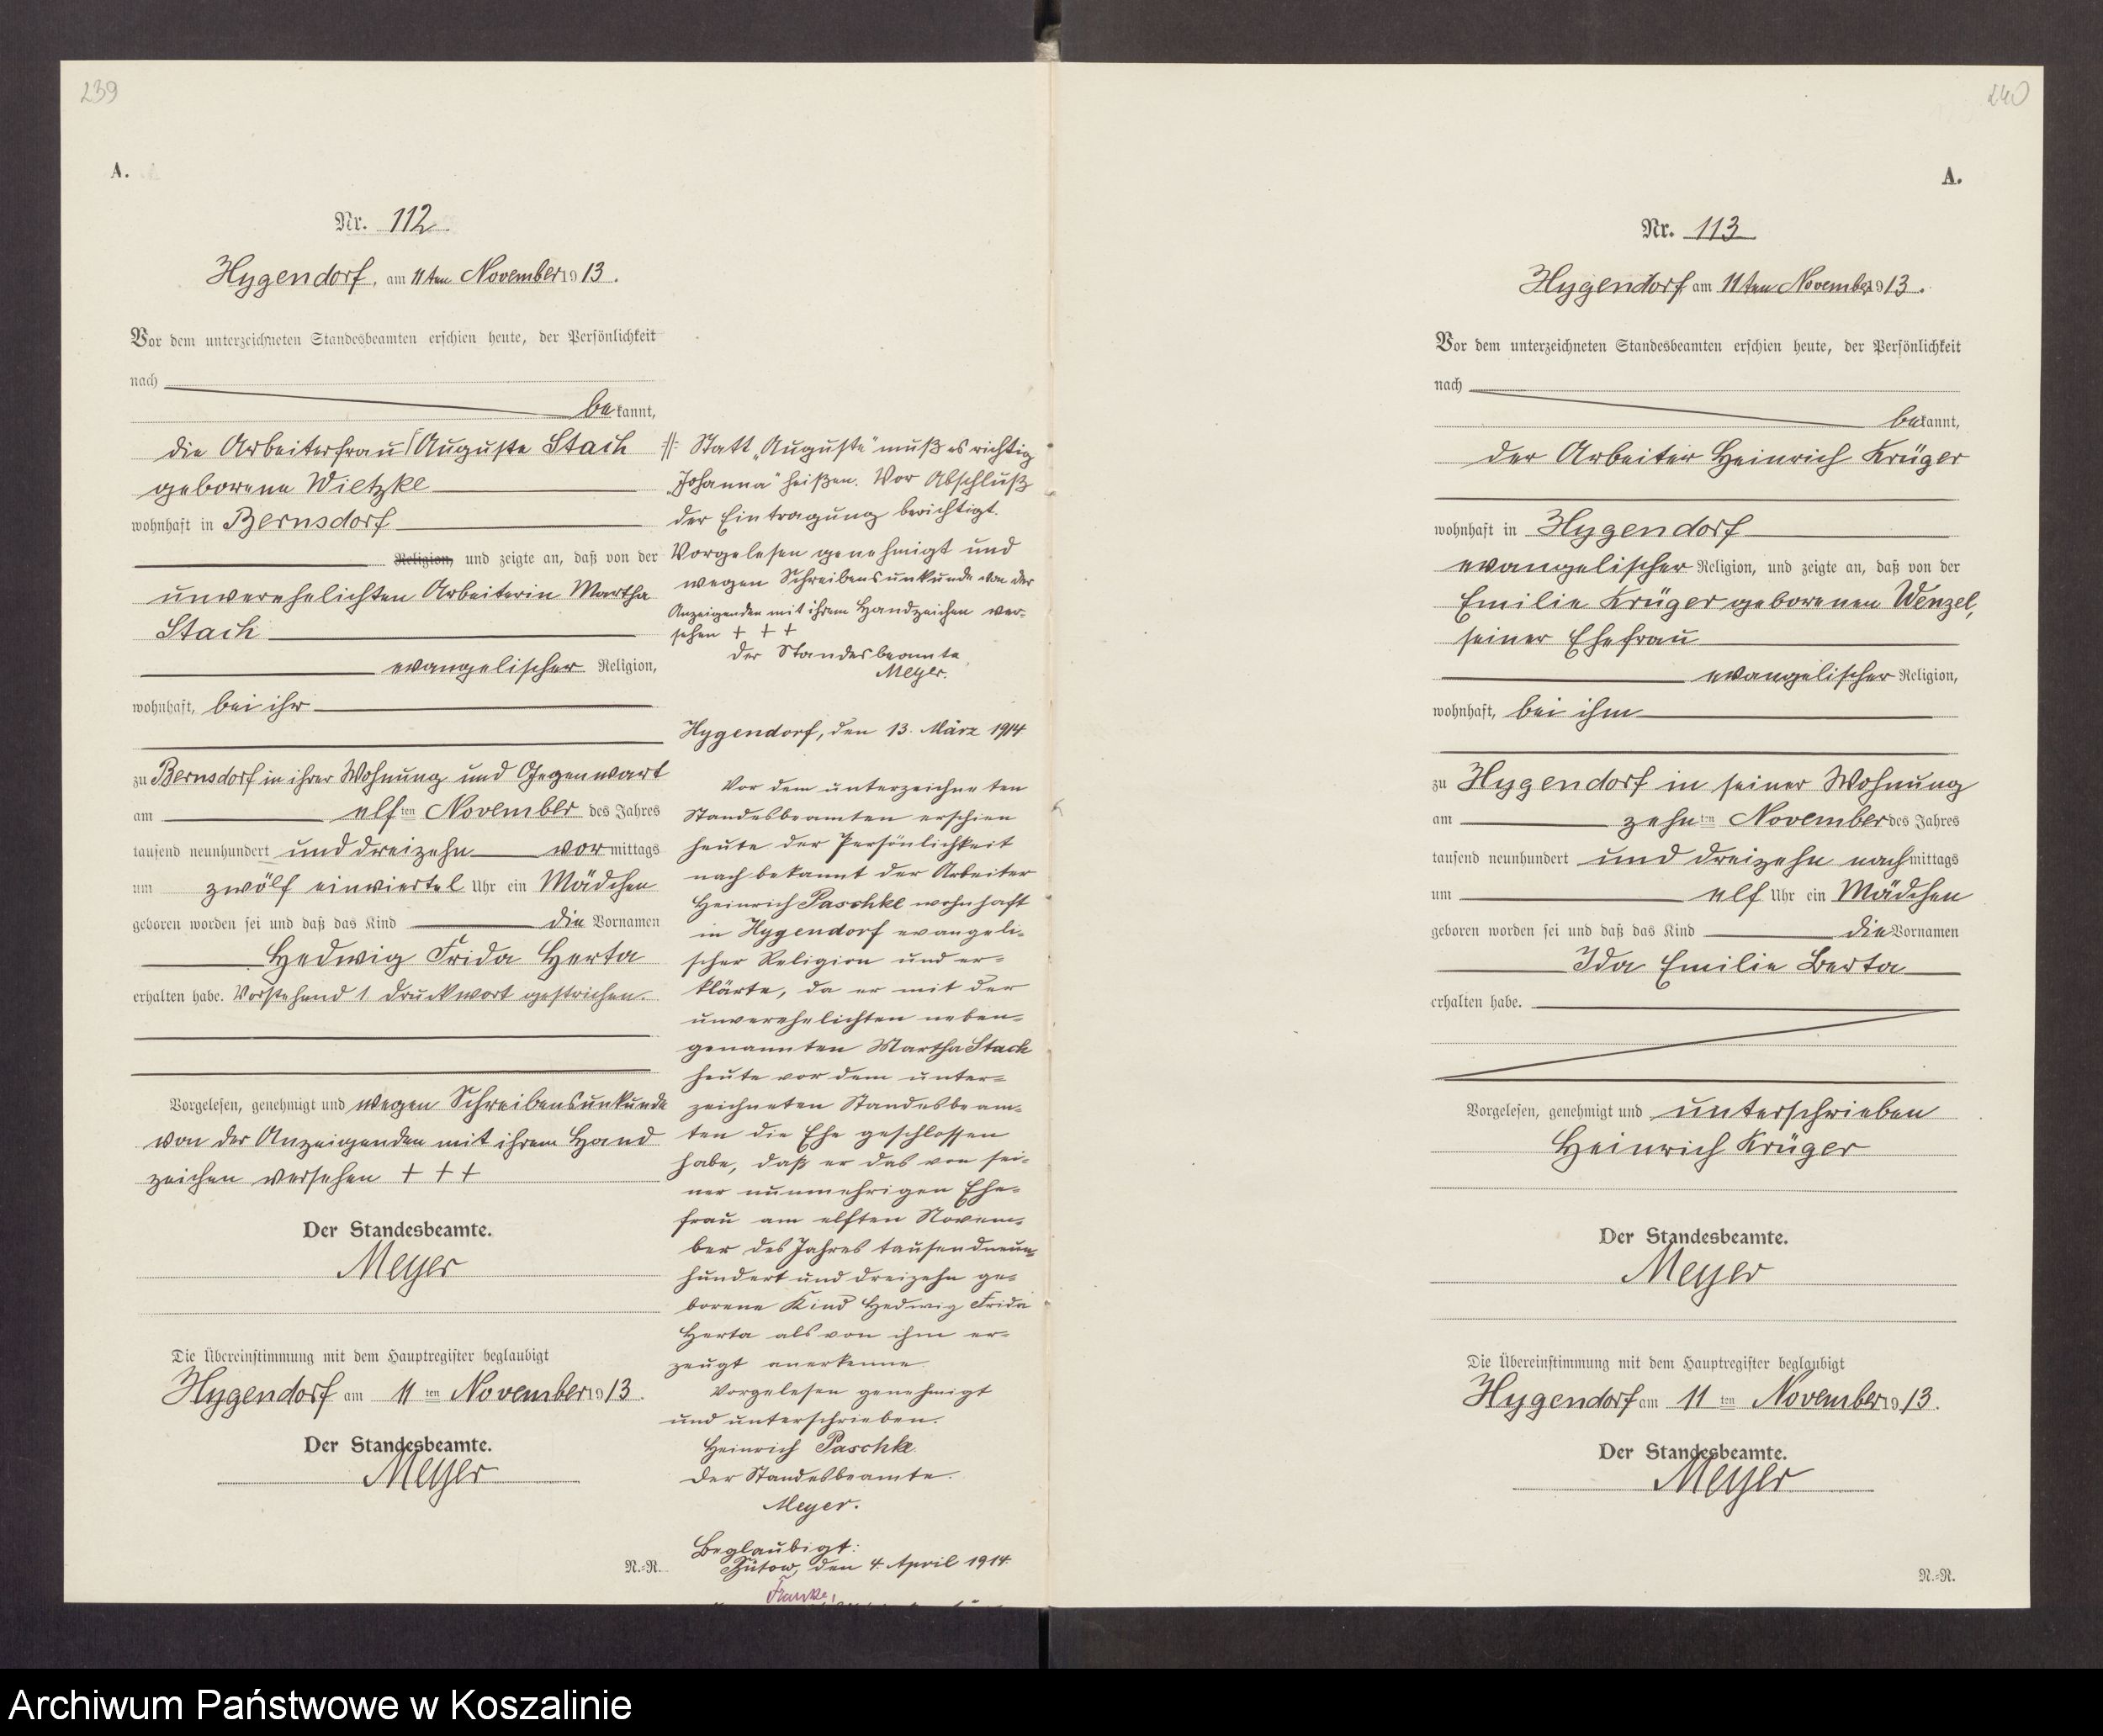 239
A.
Nr. 112.
Hygendorf, am 11ten November 1913.
Vor dem unterzeichneten Standesbeamten erschien heute, der Persönlichkeit
nach
bekannt,
die Arbeiterfrau Auguste Stach
geborene Wietzke
wohnhaft in Bernsdorf
Religion, und zeigte an, daß von der
unverehelichten Arbeiterin Martha
Stach
evangelischer Religion,
wohnhaft, bei ihr
zu Bernsdorf in ihrer Wohnung und Gegenwart
am elften November des Jahres
tausend neunhundert und dreizehn vormittags
um zwölf einviertel Uhr ein Mädchen
geboren worden sei und daß das Kind die Vornamen
Hedwig Frida Herta
erhalten habe. Vorstehend 1 Druckwort gestrichen.
Vorgelesen, genehmigt und wegen Schreibensunkunde
von der Anzeigenden mit ihrem Hand
zeichen versehen + + +
Der Standesbeamte.
Meyer
Die Übereinstimmung mit dem Hauptregister beglaubigt
Hygendorf am 11ten November 1913.
Der Standesbeamte.
Meyer
N.-R.
Statt „Auguste" muß es richtig
„Johanna" heißen. Vor Abschluß
der Eintragung berichtigt.
Vorgelesen genehmigt und
wegen Schreibensunkunde von der
Anzeigenden mit ihrem Handzeichen ver-
sehen + + +
Der Standesbeamte
Meyer.
Hygendorf, den 13. März 1914
Vor dem unterzeichneten
Standesbeamten erschien
heute der Persönlichkeit
nach bekannt der Arbeiter
Heinrich Paschke wohnhaft
in Hygendorf evangeli-
scher Religion und er-
klärte, da er mit der
unverehelichten neben-
genannten Martha Stach
heute vor dem unter-
zeichneten Standesbeam-
ten die Ehe geschlossen
habe, daß er das von sei-
ner nunmehrigen Ehe-
frau am elften Novem-
ber des Jahres tausendneun-
hundert und dreizehn ge-
borene Kind Hedwig Frida
Herta als von ihm er-
zeugt anerkenne.
Vorgelesen genehmigt
und unterschrieben.
Heinrich Paschke.
Der Standesbeamte.
Meyer.
Beglaubigt:
Bütow, den 4. April 1914.
Franke,
240
A.
Nr. 113
Hygendorf am 11ten November 1913.
Vor dem unterzeichneten Standesbeamten erschien heute, der Persönlichkeit
nach
bekannt,
der Arbeiter Heinrich Krüger
wohnhaft in Hygendorf
evangelischer Religion, und zeigte an, daß von der
Emilie Krüger geborenen Wenzel,
seiner Ehefrau
evangelischer Religion,
wohnhaft, bei ihm
zu Hygendorf in seiner Wohnung
am zehnten November des Jahres
tausend neunhundert und dreizehn nachmittags
um elf Uhr ein Mädchen
geboren worden sei und daß das Kind die Vornamen
Ida Emilie Berta
erhalten habe.
Vorgelesen, genehmigt und unterschrieben
Heinrich Krüger
Der Standesbeamte.
Meyer
Die Übereinstimmung mit dem Hauptregister beglaubigt
Hygendorf am 11ten November 1913.
Der Standesbeamte.
Meyer
N.-R.
Archiwum Państwowe w Koszalinie